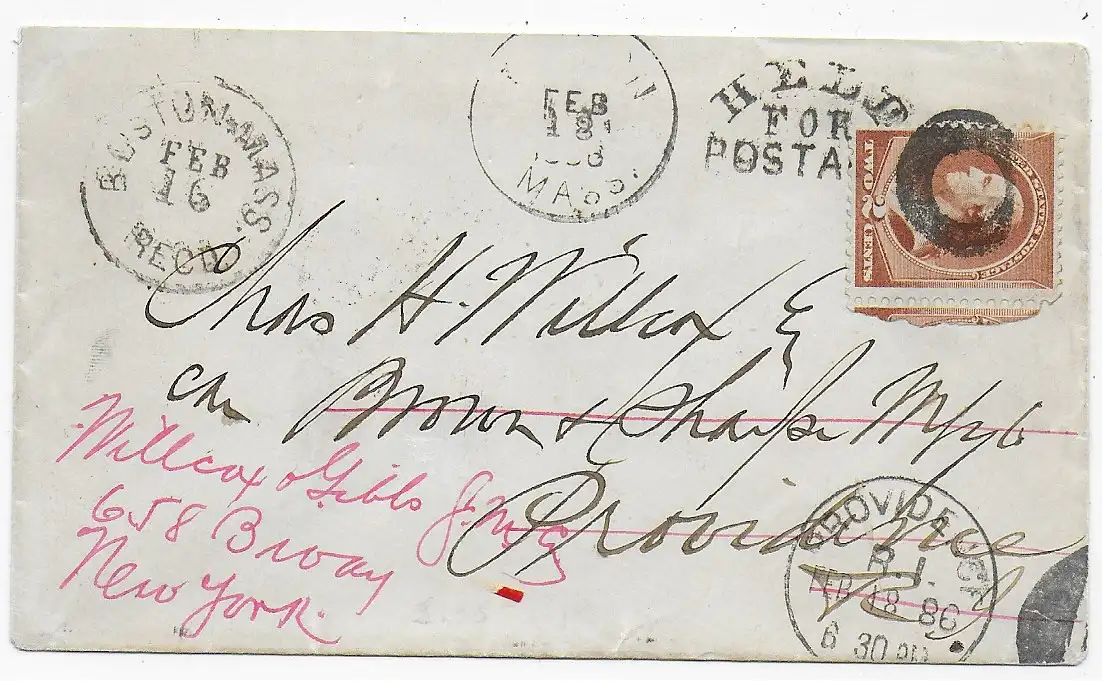 BOSTON-MASS.
FEB
16
REC'D
FEB
18
MASS.
HELD
FOR
POSTA
UNITED STATES POSTAGE
TWO 2 CENTS
Chas H. Willcox E
Brown & Sharpe Mfg
Providence
R I
Willcox & Gibbs S. M. Co
658 Bway
New York.
PROVIDENCE
R.I.
FEB 18 86
6 30 PM